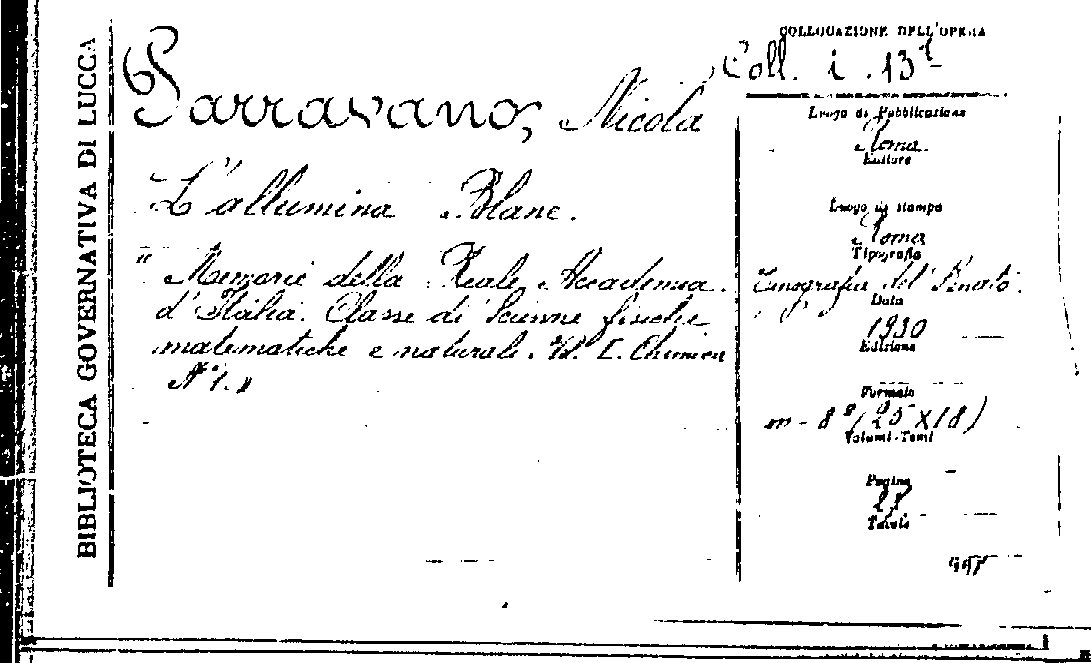 BIBLIOTECA GOVERNATIVA DI LUCCA
COLLOCAZIONE DELL'OPERA
Coll. i. 13
Parravano, Nicola
L'allumina Blanc.
" Memorie della Reale Accademia
d'Italia. Classe di Scienze fisiche
matematiche e naturali. Vol. I. Chimica
N. 1. »
Luogo di Pubblicazione
Roma
Editore
Luogo di stampa
Roma
Tipografia
Tipografia del Senato.
Data
1930
Edizione
Formato
in-8° (25 x 18)
Volumi-Tomi
Pagine
Tavole